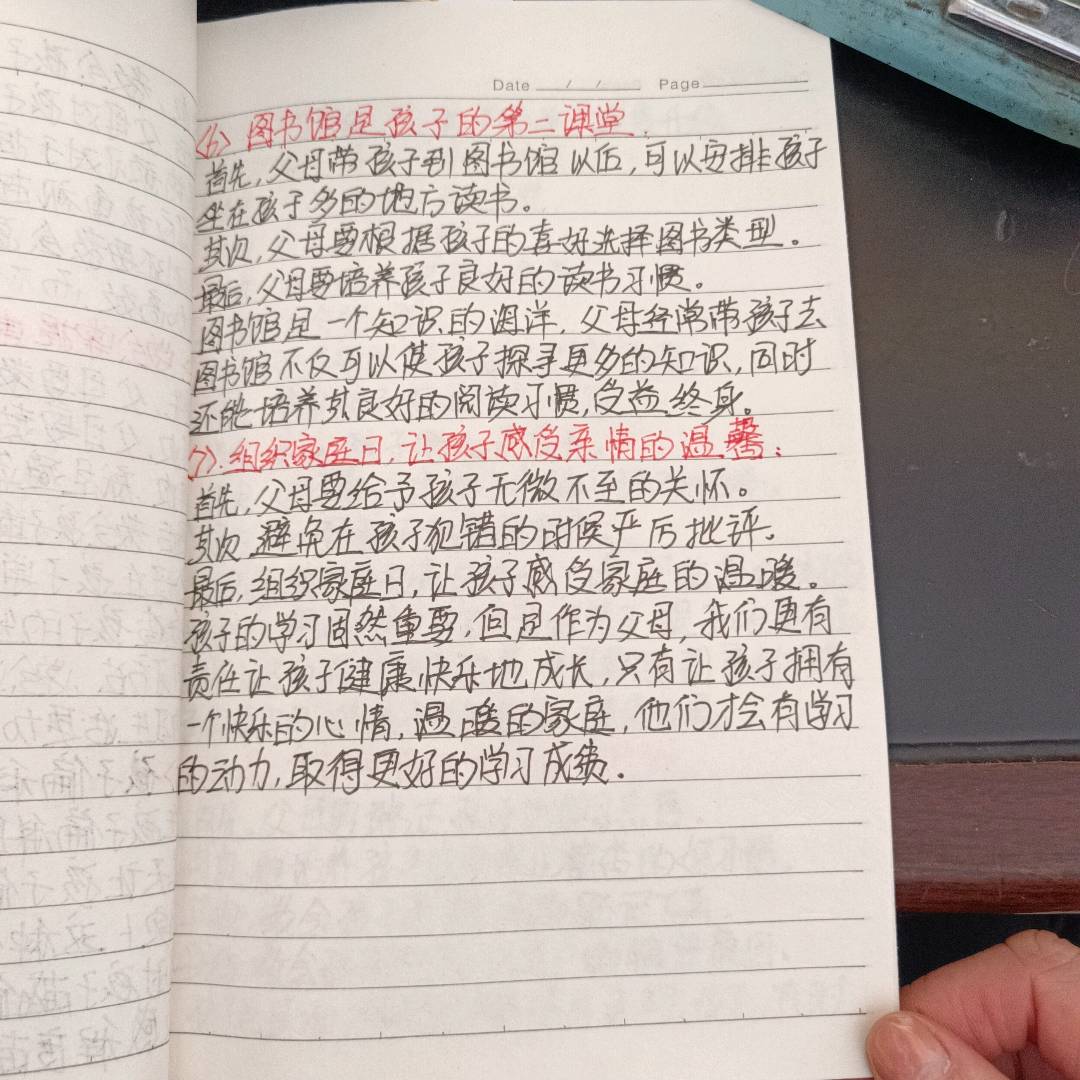 Date / / Page
(6) 图书馆是孩子的第二课堂.
首先,父母带孩子到图书馆以后,可以安排孩子
坐在孩子多的地方读书。
其次,父母要根据孩子的喜好选择图书类型。
最后,父母要培养孩子良好的读书习惯。
图书馆是一个知识的海洋,父母经常带孩子去
图书馆不仅可以使孩子探寻更多的知识,同时
还能培养其良好的阅读习惯,受益终身。
(7).组织家庭日,让孩子感受亲情的温馨:
首先,父母要给予孩子无微不至的关怀。
其次 避免在孩子犯错的时候严厉批评。
最后,组织家庭日,让孩子感受家庭的温暖。
孩子的学习固然重要,但是作为父母,我们更有
责任让孩子健康快乐地成长,只有让孩子拥有
一个快乐的心情,温暖的家庭,他们才会有学习
的动力,取得更好的学习成绩.